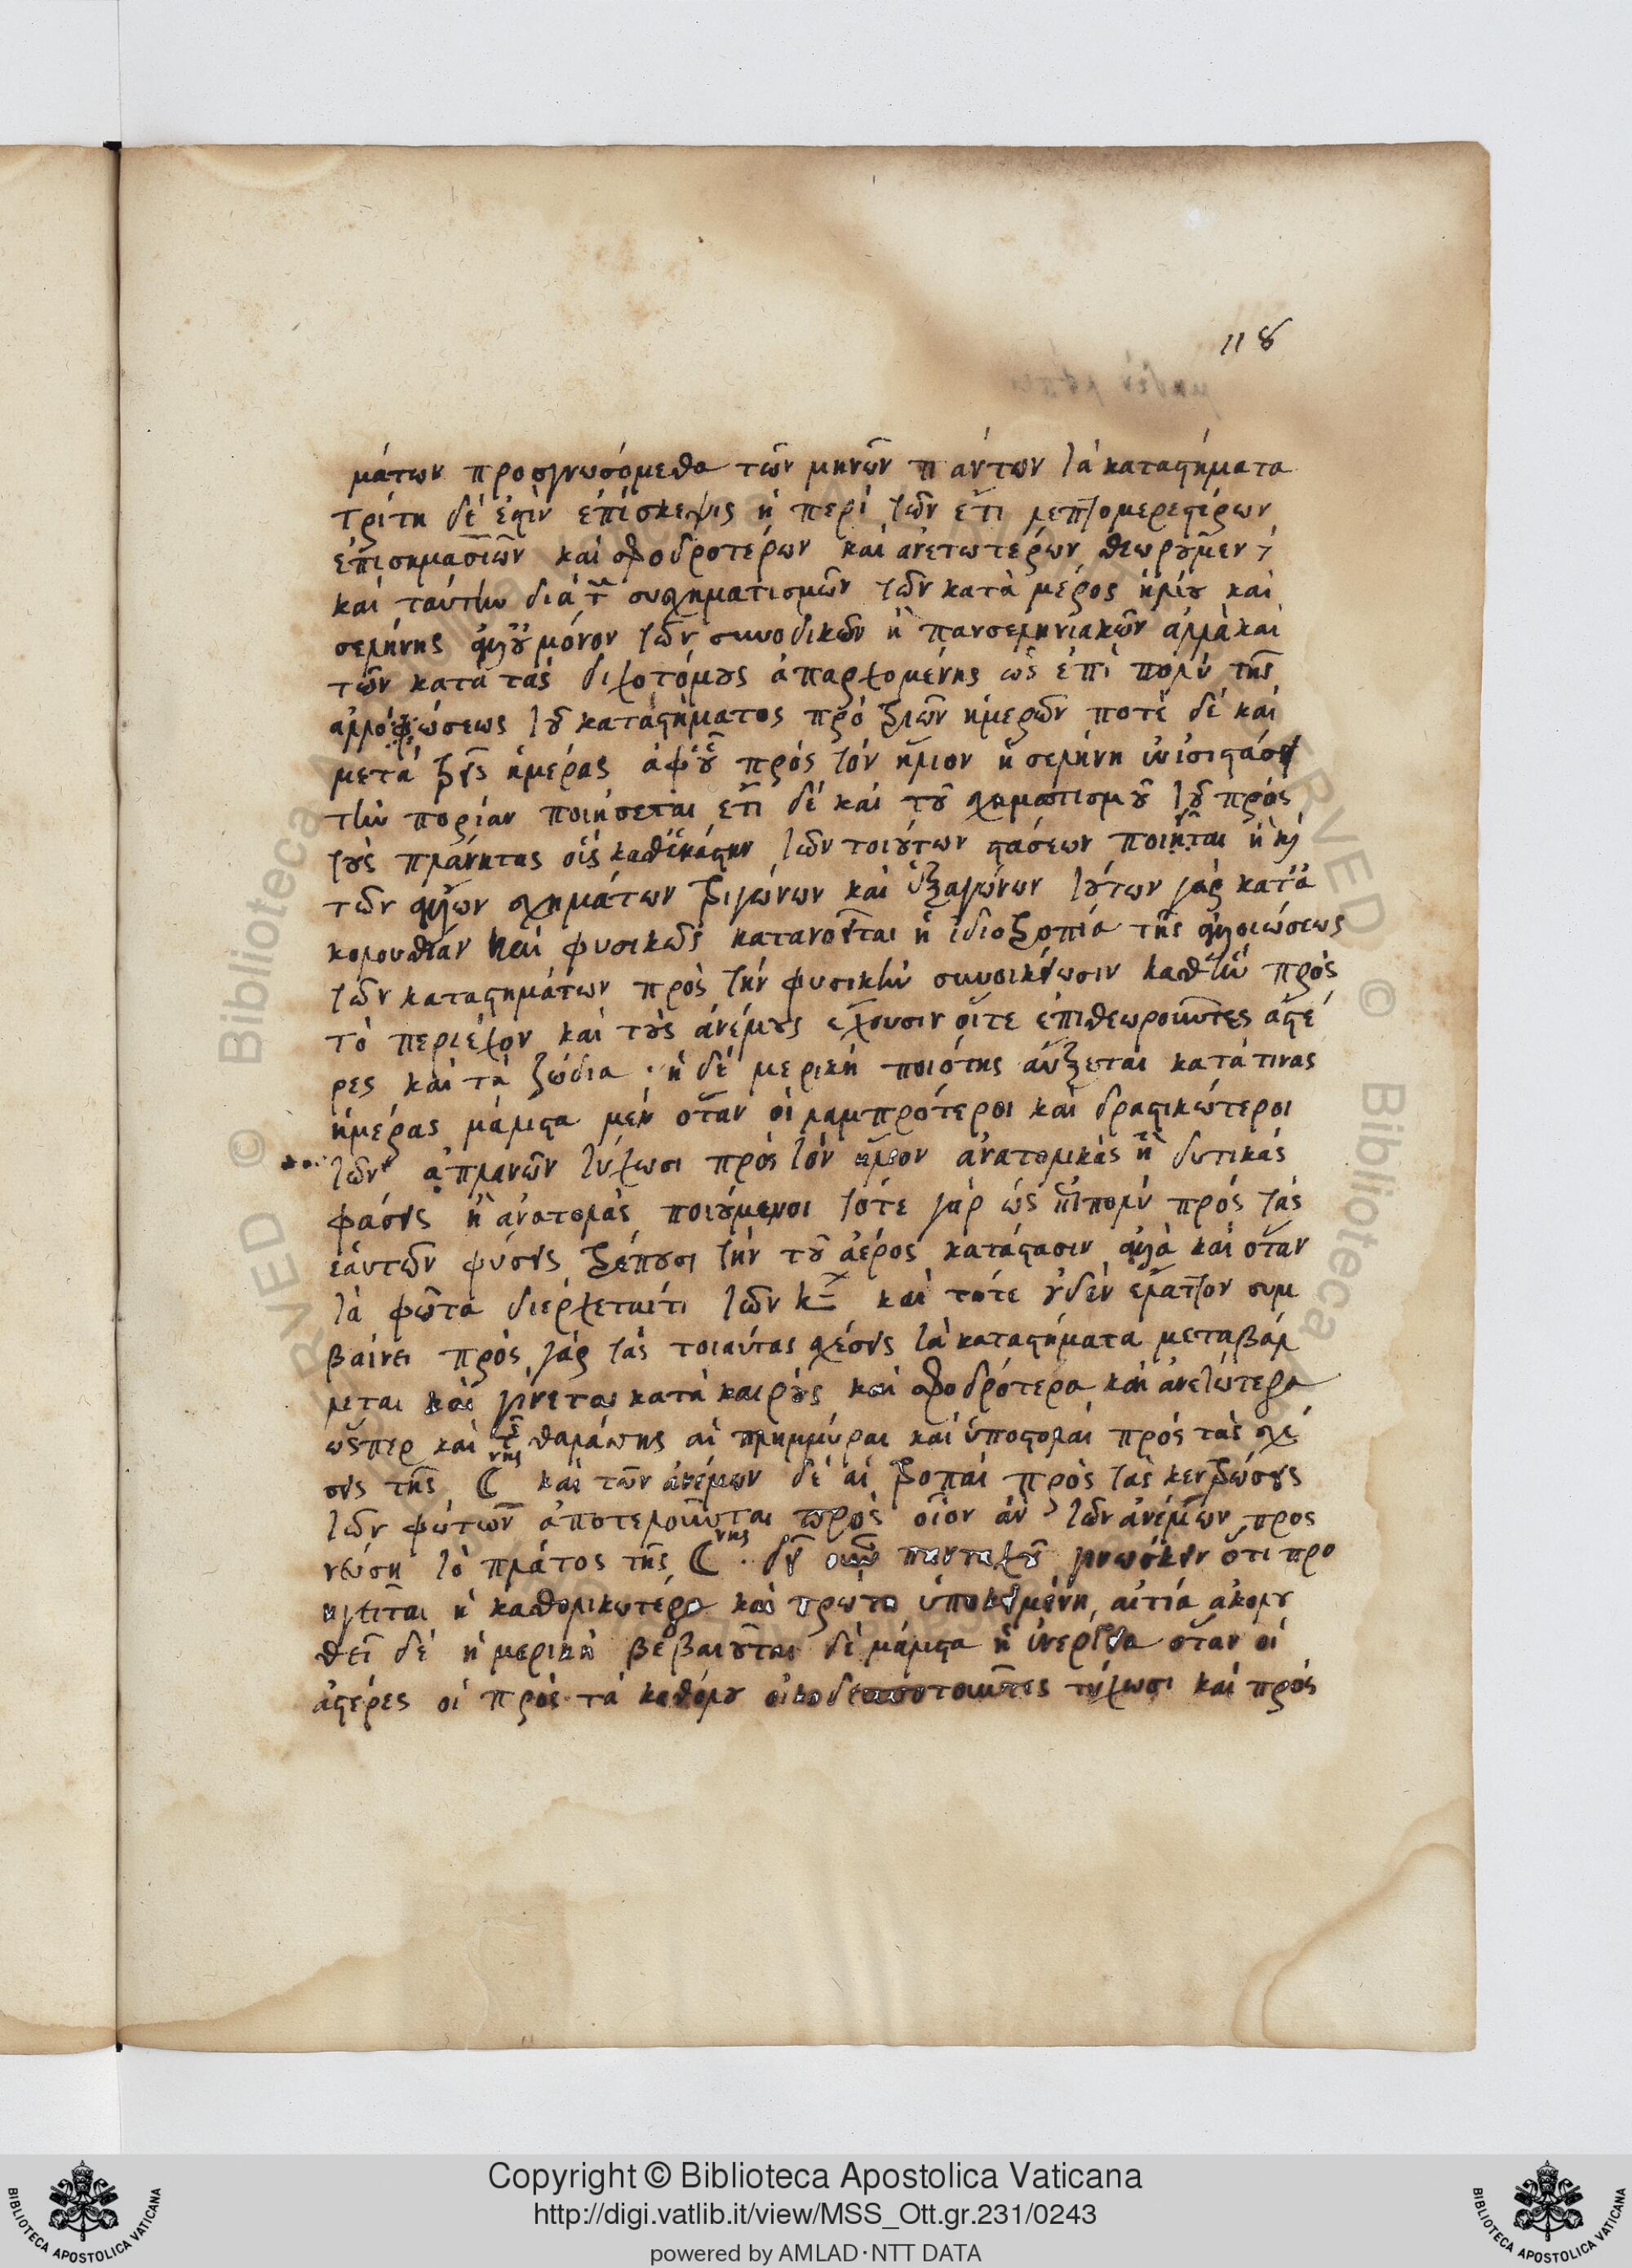 118
μάτων προσγνωσόμεθα τῶν μηνῶν πάντων τὰ καταστήματα
τρίτη δέ ἐστιν ἐπίσκεψις ἡ περὶ τῶν ἔτι λεπτομερεστέρων
ἐπισημασιῶν καὶ σφοδροτέρων καὶ ἀνετωτέρων θεωρουμεν
καὶ ταύτην διὰ τ συσχηματισμῶν τῶν κατὰ μέρος ἡλίου καὶ
σελήνης οὐ μόνον τῶν συνοδικῶν ἢ πανσεληνιακῶν ἀλλὰ καὶ
τῶν κατὰ τὰς διχοτόμους ἀπαρχομένης ὡς ἐπὶ πολὺ τῆς
ἀλλοιώσεως τοῦ καταστήματος πρὸ τριῶν ἡμερῶν ποτὲ δὲ καὶ
μετὰ τρεῖς ἡμέρας ἀφ' οὗ πρὸς τὸν ἥλιον ἡ σελήνη
τὴν πορίαν ποιήσεται ἔτι δὲ καὶ τοῦ σχηματισμοῦ τοῦ πρὸς
τοὺς πλάνητας οἷς καθ' ἑκάστην τῶν τοιούτων στάσεων ποιῆται ἢ καὶ
τῶν ἄλλων σχημάτων τριγώνων καὶ ἑξαγώνων τούτων γὰρ κατ' ἀ
κολουθίαν καὶ φυσικῶς κατανοεῖται ἡ ἰδιοτροπία τῆς ἀλλοιώσεως
τῶν καταστημάτων πρὸς τὴν φυσικὴν συνοικείωσιν καθ' ἣν πρὸς
τὸ περιέχον καὶ τοὺς ἀνέμους ἔχουσιν οἵτε ἐπιθεωροῦντες ἀστέ
ρες καὶ τὰ ζώδια · ἡ δὲ μερικὴ ποιότης αὔξεται κατά τινας
ἡμέρας μάλιστα μὲν ὅταν οἱ λαμπρότεροι καὶ δραστικώτεροι
τῶν ἀπλανῶν τύχωσι πρὸς τὸν ἥλιον ἀνατολικὰς ἢ δυτικὰς
φάσεις ἢ ἀνατολὰς ποιούμενοι τότε γὰρ ὡς ἐπιπολὺ πρὸς τὰς
ἑαυτῶν φύσεις τρέπουσι τὴν τοῦ ἀέρος κατάστασιν ἀλλὰ καὶ ὅταν
τὰ φῶτα διέρχεταί τι τῶν κ καὶ τότε οὐδὲν ἔλαττον συμ
βαίνει πρὸς γὰρ τὰς τοιαύτας σχέσεις τὰ καταστήματα μεταβάλ
λεται καὶ γίνεται κατὰ καιροὺς καὶ σφοδρότερα καὶ ἀνετώτερα
ὥσπερ καὶ τῆς θαλάσσης αἱ πλημμύραι καὶ ὑποστολαὶ πρὸς τὰς σχέ
σεις τῆς ☾νης καὶ τῶν ἀνέμων δὲ αἱ τροπαὶ πρὸς τὰς κεντρώσεις
τῶν φώτων ἀποτελοῦνται πρὸς οἷον ἂν τῶν ἀνέμων προς
νεύση τὸ πλάτος τῆς ☾νης · δεῖ οὖν πανταχοῦ γινώσκειν ὅτι προ
ηγεῖται ἡ καθολικωτέρα καὶ πρώτη ὑποκειμένη αἰτία ἀκολου
θεῖ δὲ ἡ μερικὴ βεβαιοῦται δὲ μάλιστα ἡ ἐνέργεια ὅταν οἱ
ἀστέρες οἱ πρὸς τὰ καθόλου οἰκοδεσποτοῦντες τύχωσι καὶ πρὸς
Copyright © Biblioteca Apostolica Vaticana
http://digi.vatlib.it/view/MSS_Ott.gr.231/0243
powered by AMLAD·NTT DATA
BIBLIOTECA APOSTOLICA VATICANA
BIBLIOTECA APOSTOLICA VATICANA